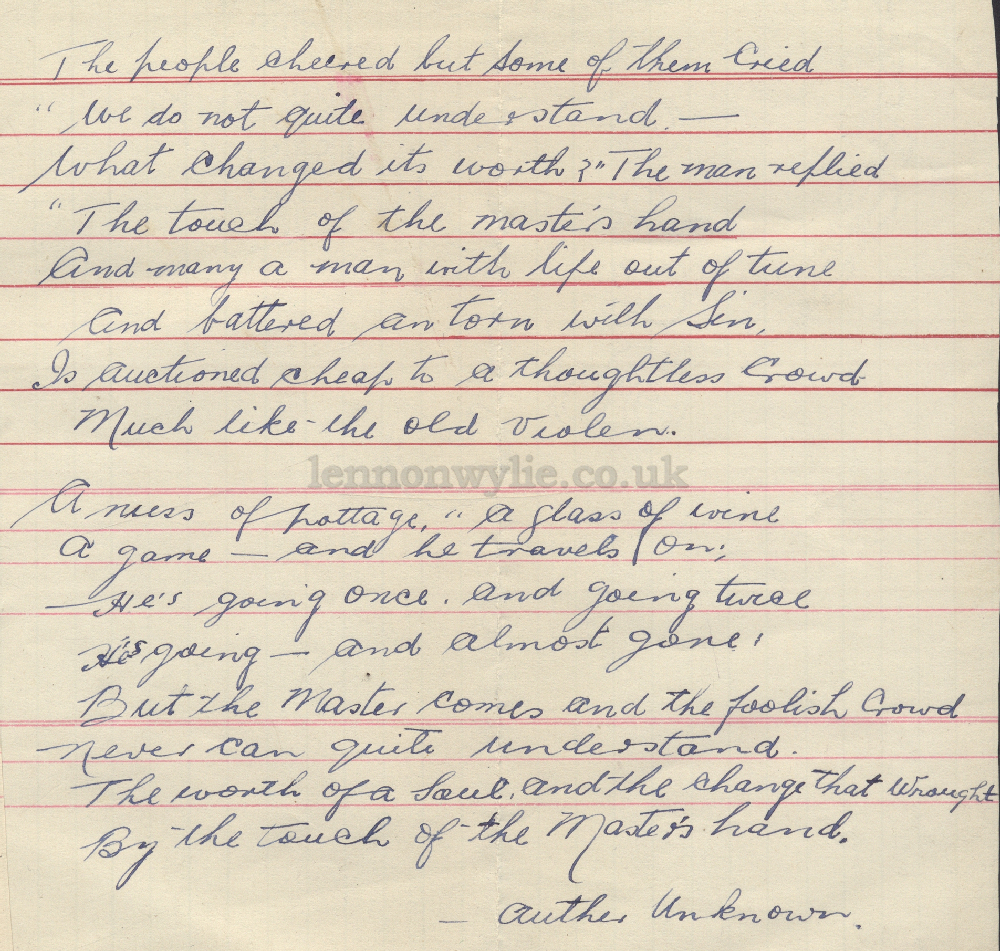 The people cheered but some of them Cried
" We do not quite understand. —
What changed its worth?" The man replied
" The touch of the master's hand
And many a man with life out of tune
And battered an torn with Sin,
Is auctioned cheap to a thoughtless Crowd
Much like the old violen.
lennonwylie.co.uk
A mess of pottage, " a glass of wine
A game — and he travels on;
— He's going once. and going twice
He's going — and almost gone!
But the Master comes and the foolish Crowd
never can quite understand.
The worth of a Soul. and the change that Wrought
By the touch of the Master's hand.
— Auther Unknown.